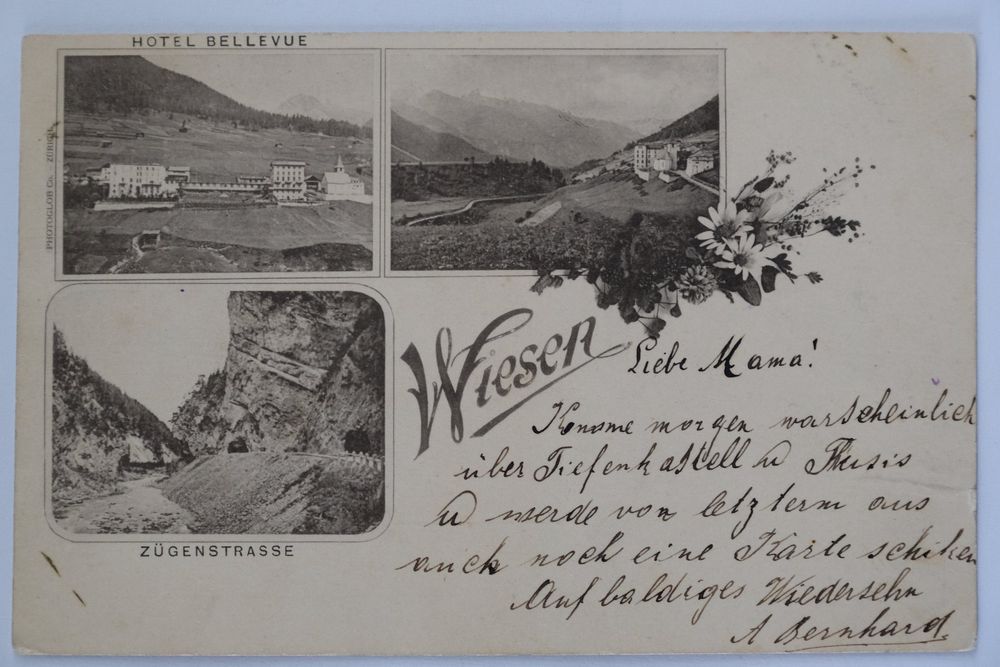 HOTEL BELLEVUE
PHOTOGLOB Co. ZÜRICH
ZÜGENSTRASSE
Wiesen
Liebe Mama!
Komme morgen warscheinlich
über Tiefenkastell u Thusis
u werde von letzterm aus
auch noch eine Karte schiken
Auf baldiges Wiedersehn
A Bernhard.